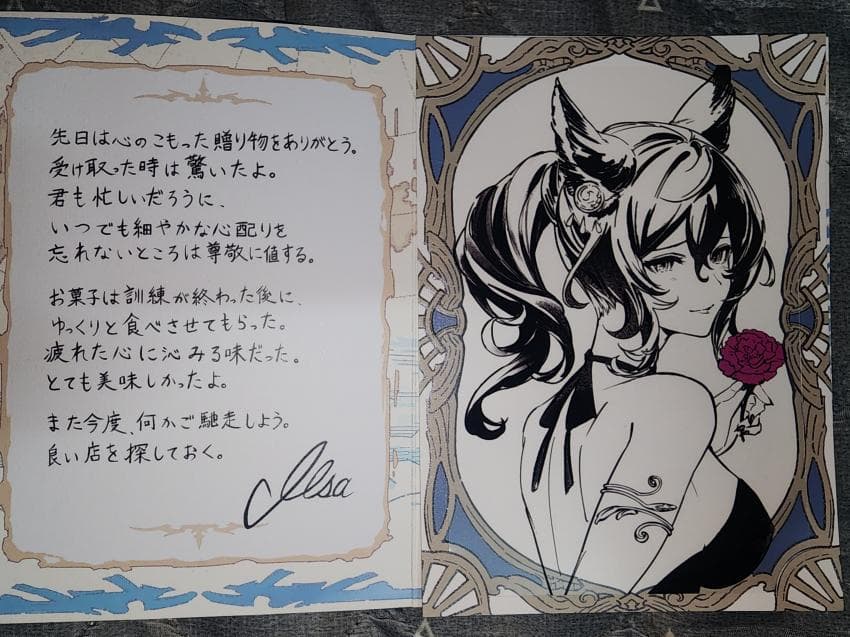 先日は心のこもった贈り物をありがとう。
受け取った時は驚いたよ。
君も忙しいだろうに、
いつでも細やかな心配りを
忘れないところは尊敬に値する。
お菓子は訓練が終わった後に、
ゆっくりと食べさせてもらった。
疲れた心に沁みる味だった。
とても美味しかったよ。
また今度、何かご馳走しよう。
良い店を探しておく。
Ilsa